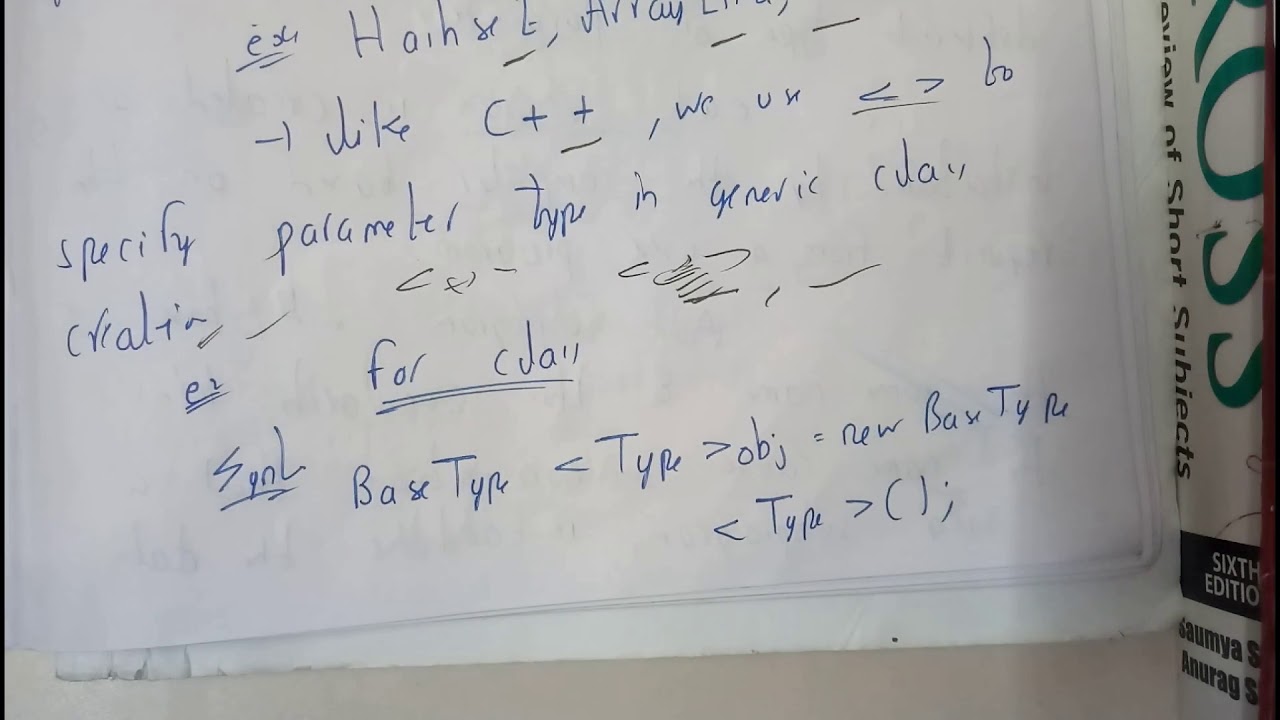 ex HashSet, ArrayList,
→ like C++, we use <> to
specify parameter type in generic class
<x>
creation
ex for class
Synt BaseType <Type> obj = new BaseType
<Type>();
ROSS
eview of Short Subjects
SIXTH
EDITIO
Saumya S
Anurag S